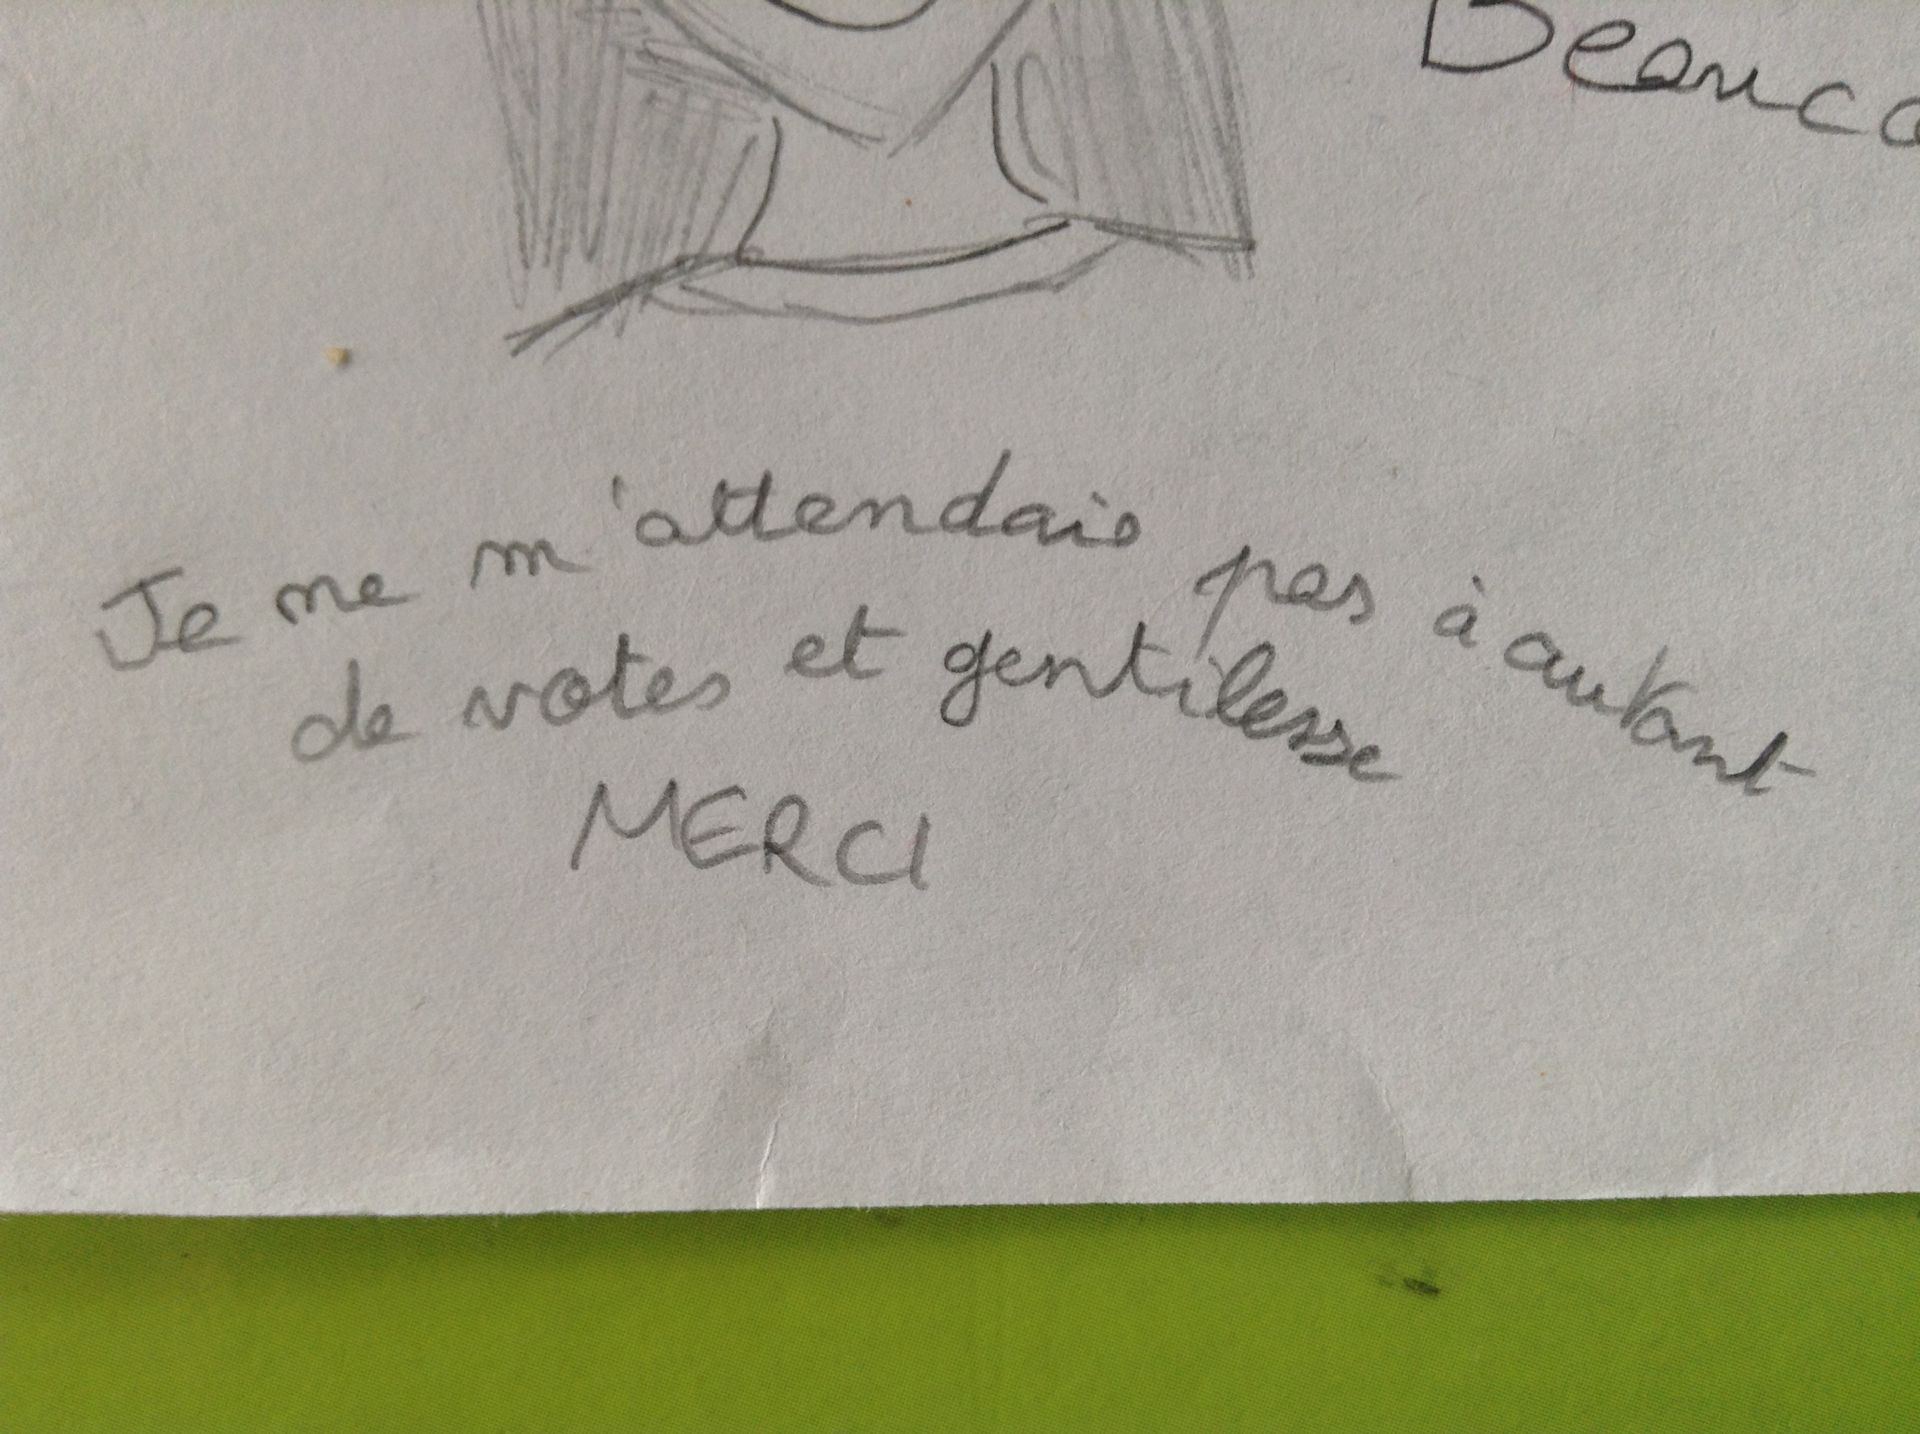 Beauco
Je ne m'attendais pas à autant
de votes et gentilesse
MERCI